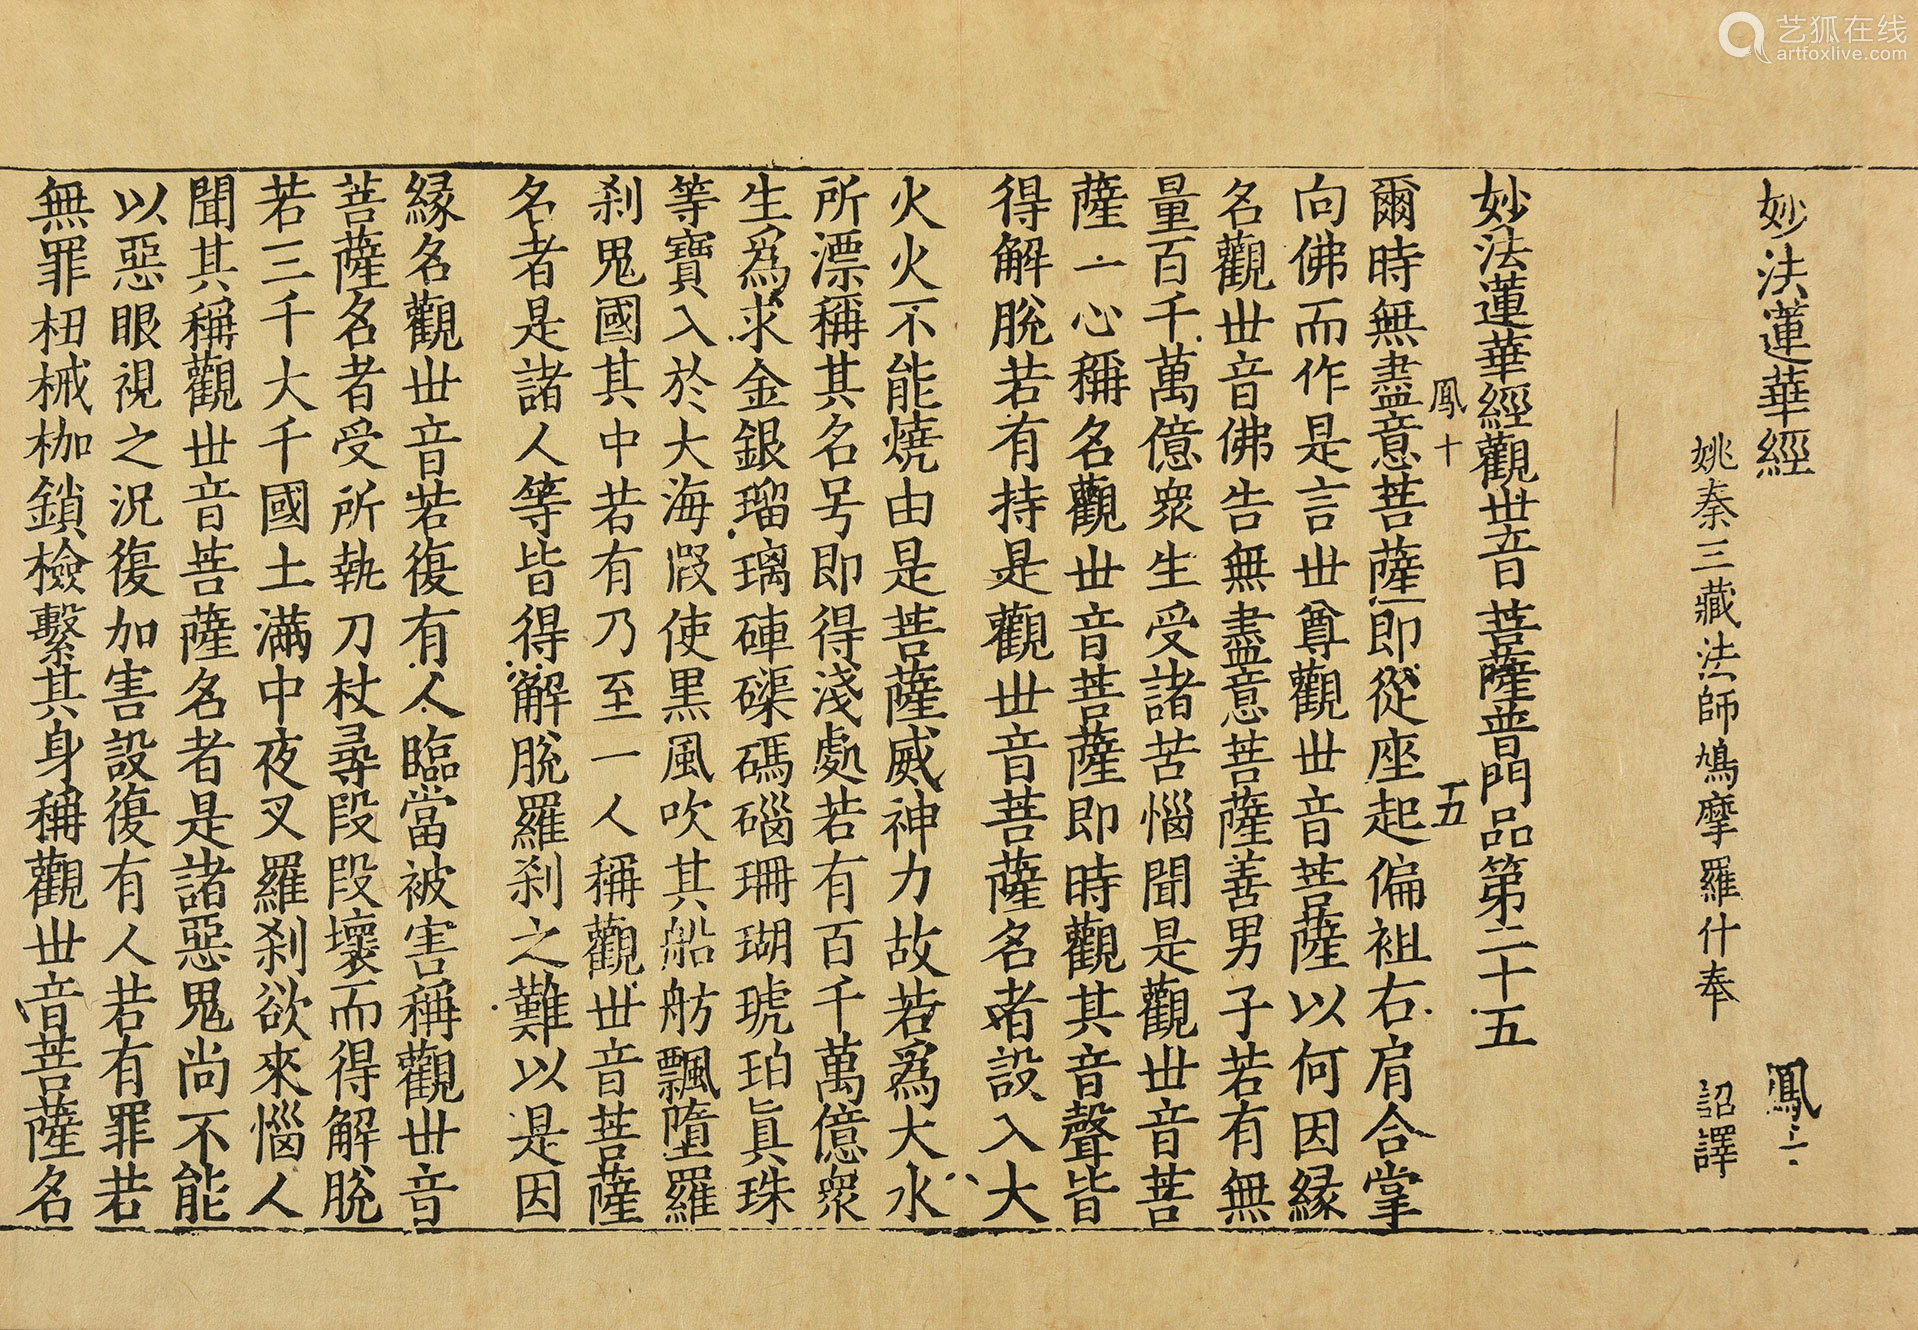 艺狐在线
artfoxlive.com
妙法蓮華經 鳳二
姚秦三藏法師鳩摩羅什奉 詔譯
妙法蓮華經觀世音菩薩普門品第二十五
鳳十 五
爾時無盡意菩薩即從座起偏袒右肩合掌
向佛而作是言世尊觀世音菩薩以何因緣
名觀世音佛告無盡意菩薩善男子若有無
量百千萬億衆生受諸苦惱聞是觀世音菩
薩一心稱名觀世音菩薩即時觀其音聲皆
得解脫若有持是觀世音菩薩名者設入大
火火不能燒由是菩薩威神力故若爲大水
所漂稱其名号即得淺處若有百千萬億衆
生爲求金銀瑠璃硨磲碼碯珊瑚琥珀眞珠
等寶入於大海假使黑風吹其船舫飄墮羅
刹鬼國其中若有乃至一人稱觀世音菩薩
名者是諸人等皆得解脫羅刹之難以是因
緣名觀世音若復有人臨當被害稱觀世音
菩薩名者彼所執刀杖尋段段壞而得解脫
若三千大千國土滿中夜叉羅刹欲來惱人
聞其稱觀世音菩薩名者是諸惡鬼尚不能
以惡眼視之況復加害設復有人若有罪若
無罪杻械枷鎖檢繫其身稱觀世音菩薩名